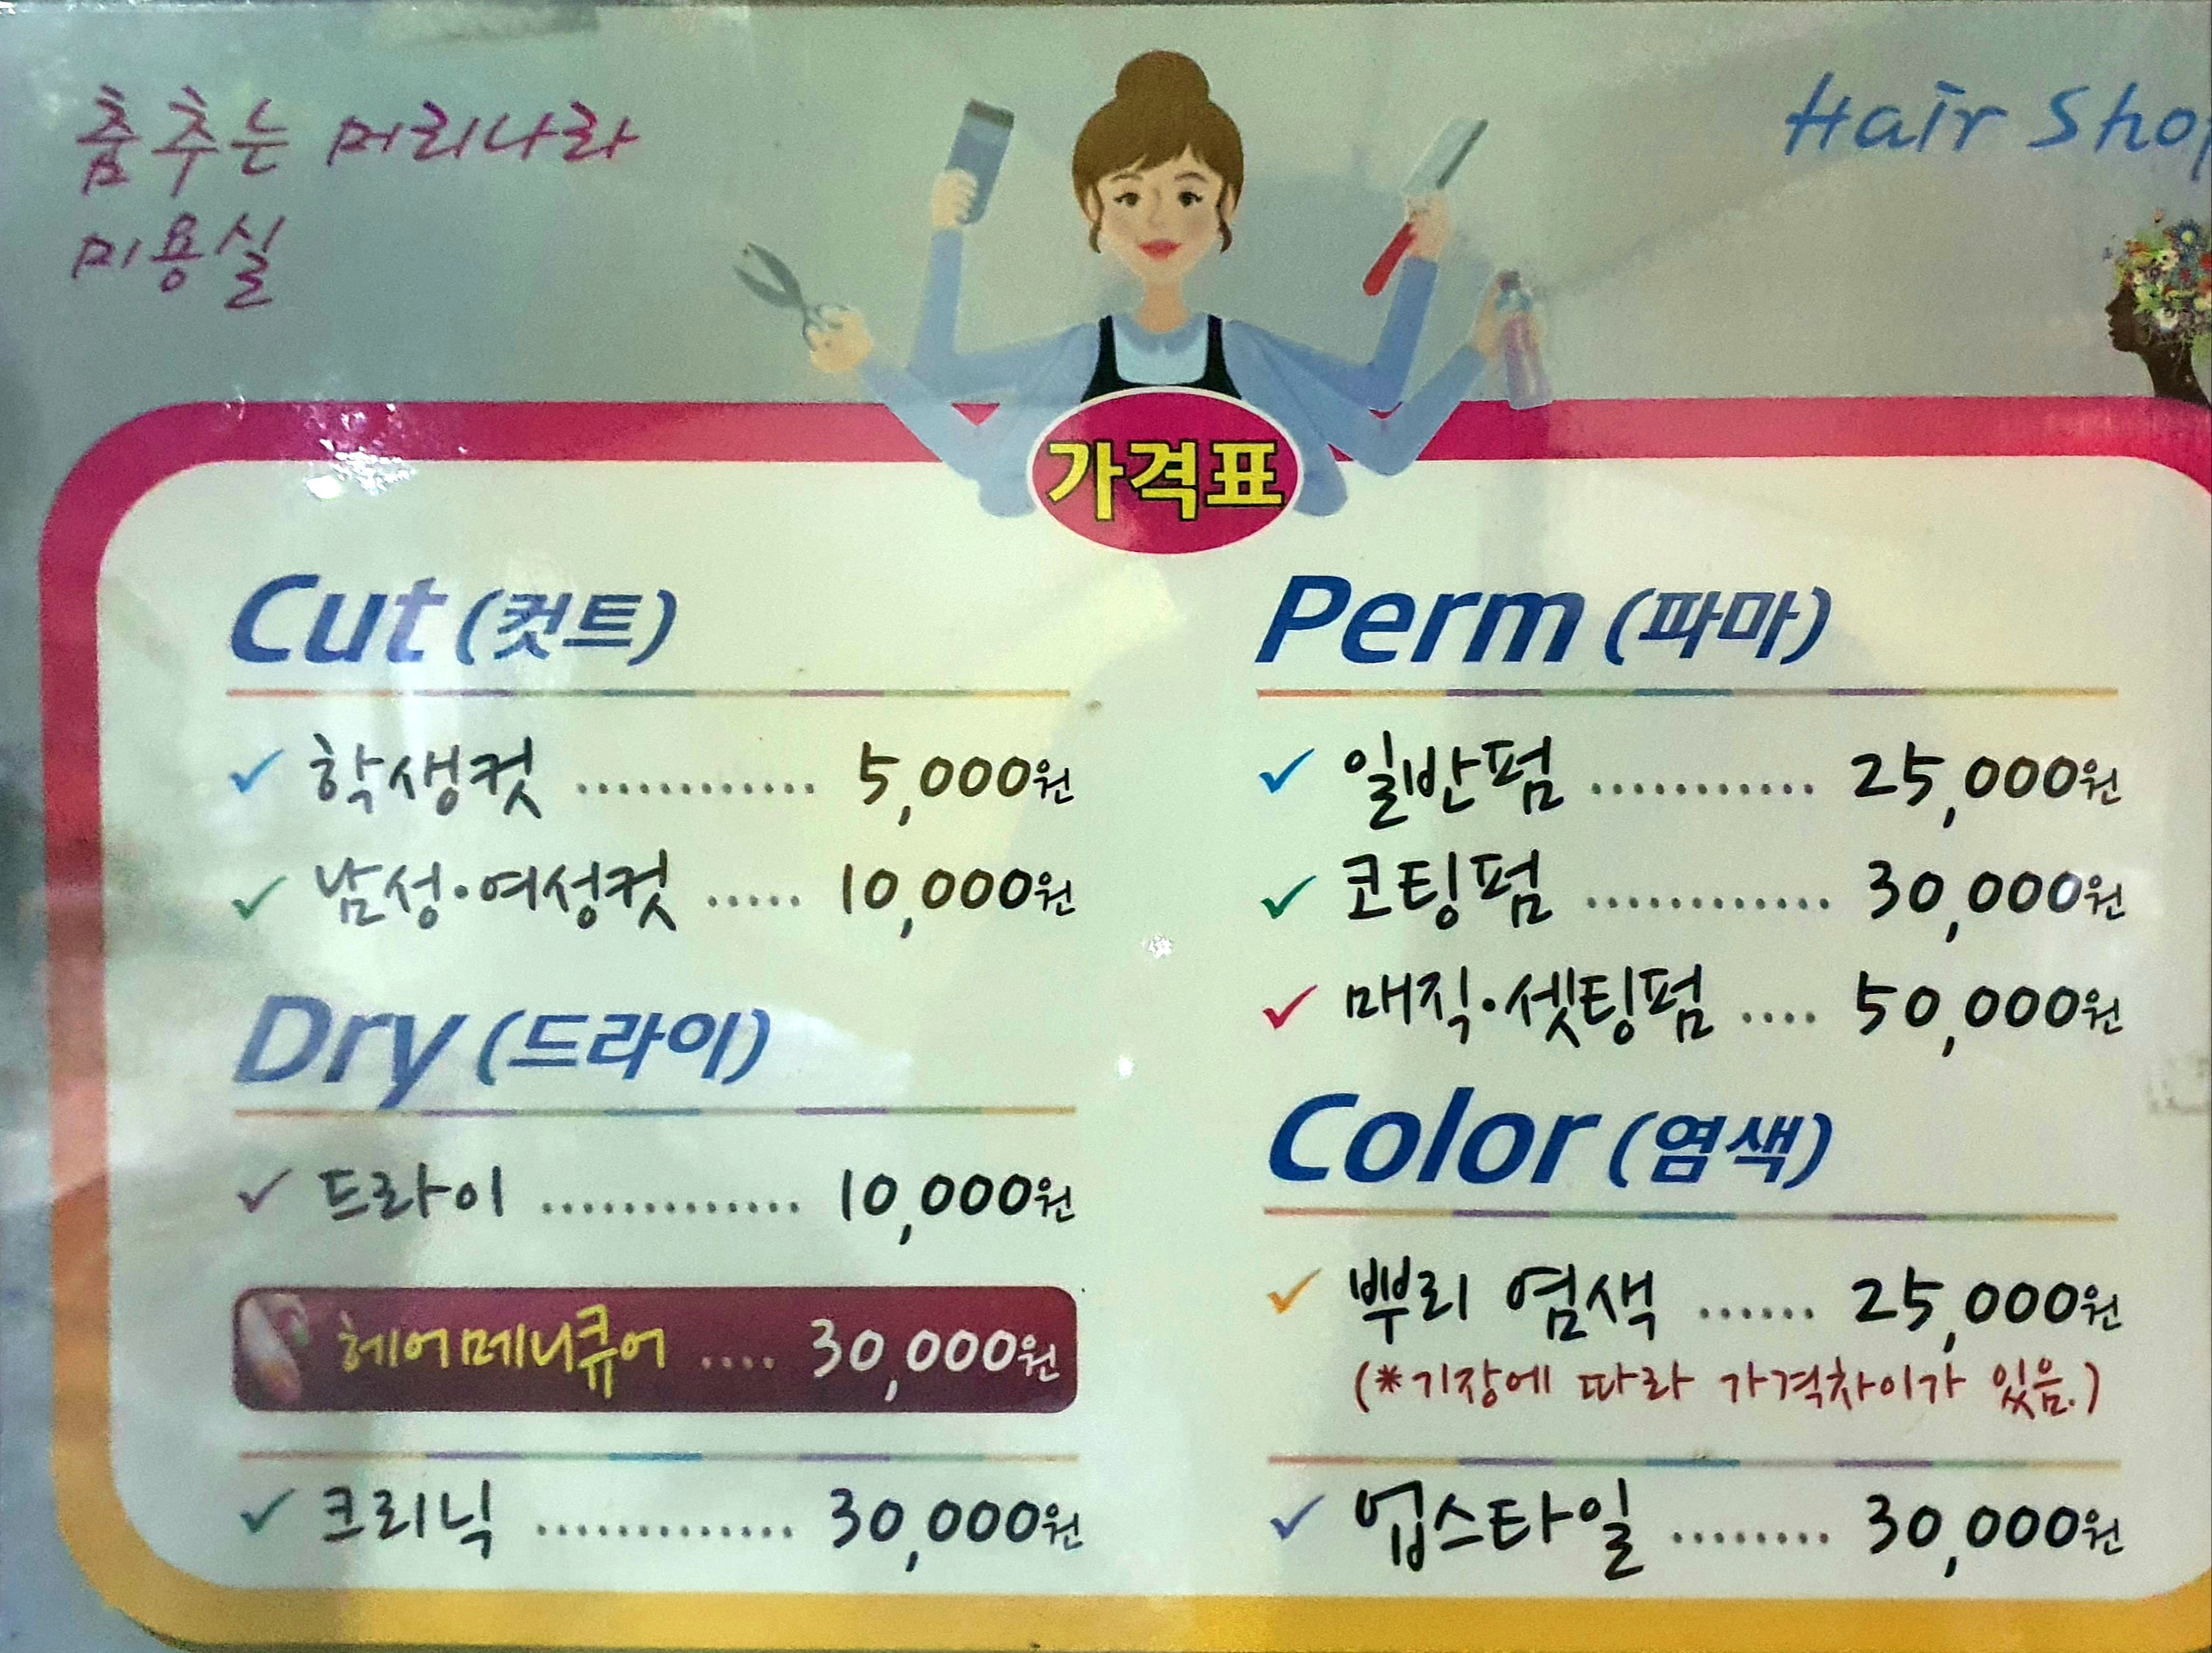 춤추는 머리나라
미용실
Hair Shop
가격표
Cut (컷트)
학생컷 ............ 5,000원
남성·여성컷 ..... 10,000원
Dry (드라이)
드라이 ............. 10,000원
헤어메니큐어 .... 30,000원
크리닉 ............. 30,000원
Perm (파마)
일반펌 ........... 25,000원
코팅펌 ............. 30,000원
매직·셋팅펌 .... 50,000원
Color (염색)
뿌리 염색 ...... 25,000원
(*기장에 따라 가격차이가 있음.)
업스타일 ........ 30,000원